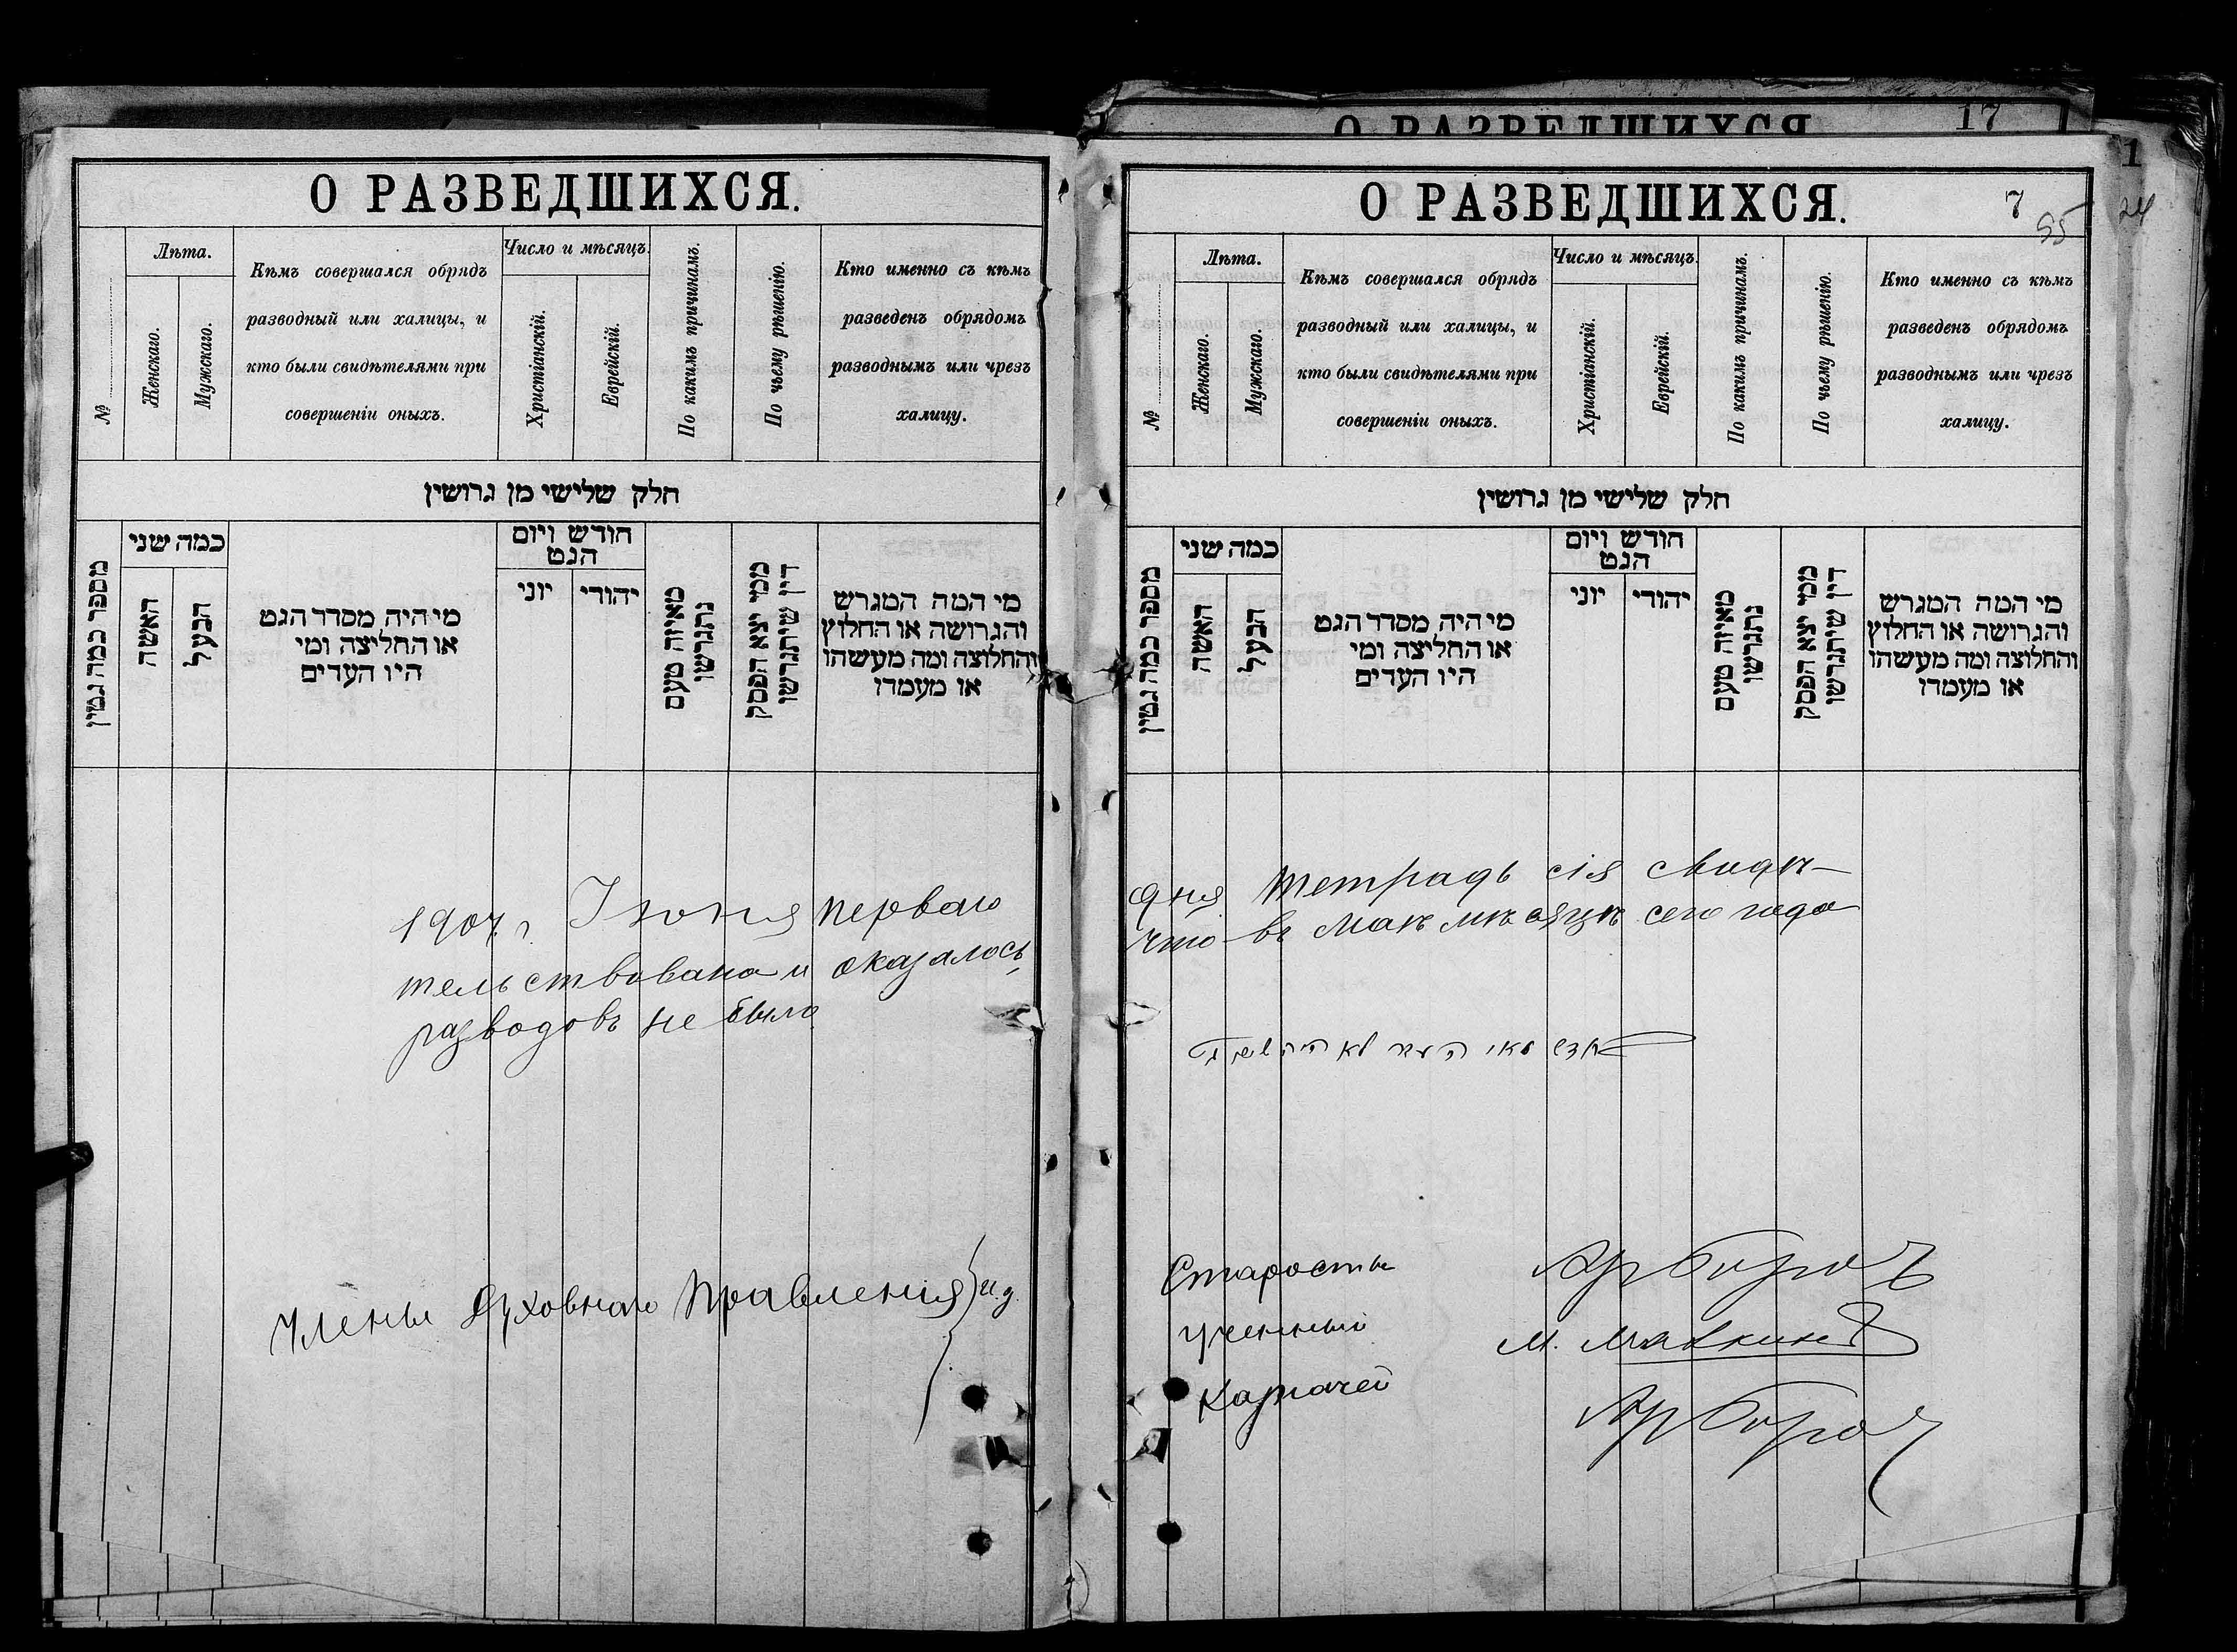 О РАЗВЕДШИХСЯ.
№
Лѣта.
Женскаго.
Мужскаго.
Кѣмъ совершался обрядъ
разводный или халицы, и
кто были свидѣтелями при
совершеніи оныхъ.
Число и мѣсяцъ.
Христіанскій.
Еврейскій.
По какимъ причинамъ.
По чьему рѣшенію.
Кто именно съ кѣмъ
разведенъ обрядомъ
разводнымъ или чрезъ
халицу.
חלק שלישי מן גרושין
מספר כמה גטין
כמה שני
האשה
הבעל
מי היה מסדר הגט
או החליצה ומי
היו העדים
חודש ויום
הגט
יוני
יהודי
מאיזה טעם
נתגרשו
ממי יצא הפסק
דין שיתגרשו
מי המה המגרש
והגרושה או החלוץ
והחלוצה ומה מעשהו
או מעמדו
1907 г. Іюня перваго
тельствована и оказалось,
разводовъ не было
Члены Духовнаго Правленія и.д.
О РАЗВЕДШИХСЯ
17
1
О РАЗВЕДШИХСЯ.
7
55
24
№
Лѣта.
Женскаго.
Мужскаго.
Кѣмъ совершался обрядъ
разводный или халицы, и
кто были свидѣтелями при
совершеніи оныхъ.
Число и мѣсяцъ.
Христіанскій.
Еврейскій.
По какимъ причинамъ.
По чьему рѣшенію.
Кто именно съ кѣмъ
разведенъ обрядомъ
разводнымъ или чрезъ
халицу.
חלק שלישי מן גרושין
מספר כמה גטין
כמה שני
האשה
הבעל
מי היה מסדר הגט
או החליצה ומי
היו העדים
חודש ויום
הגט
יוני
יהודי
מאיזה טעם
נתגרשו
ממי יצא הפסק
דין שיתגרשו
מי המה המגרש
והגרושה או החלוץ
והחלוצה ומה מעשהו
או מעמדו
дня тетрадь сія свидѣ-
что въ Маѣ мѣсяцѣ сего года
חדש מאי לא היה
Староста
Ученный
М.
Казначей